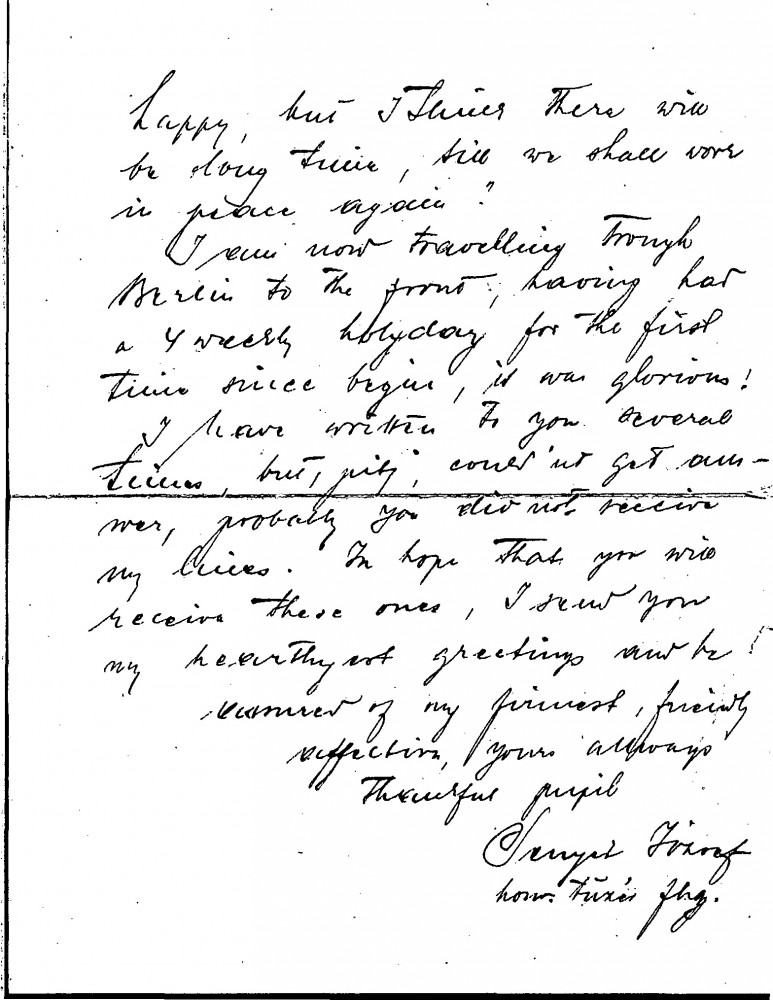 happy, but I think there will
be long time, till we shall work
in peace again!
I am now travelling trough
Berlin to the front, having had
a 4 weekly holyday for the first
time since begin, it was glorious!
I have written to you several
times, but, pitj, could'nt get ans-
wer, probably you did not receive
my lines. In hope that you will
receive these ones, I send you
my hearthyest greetings and be
assured of my firmest, friendly
affection, yours allways
thankful pupil
József
honv. tüzér